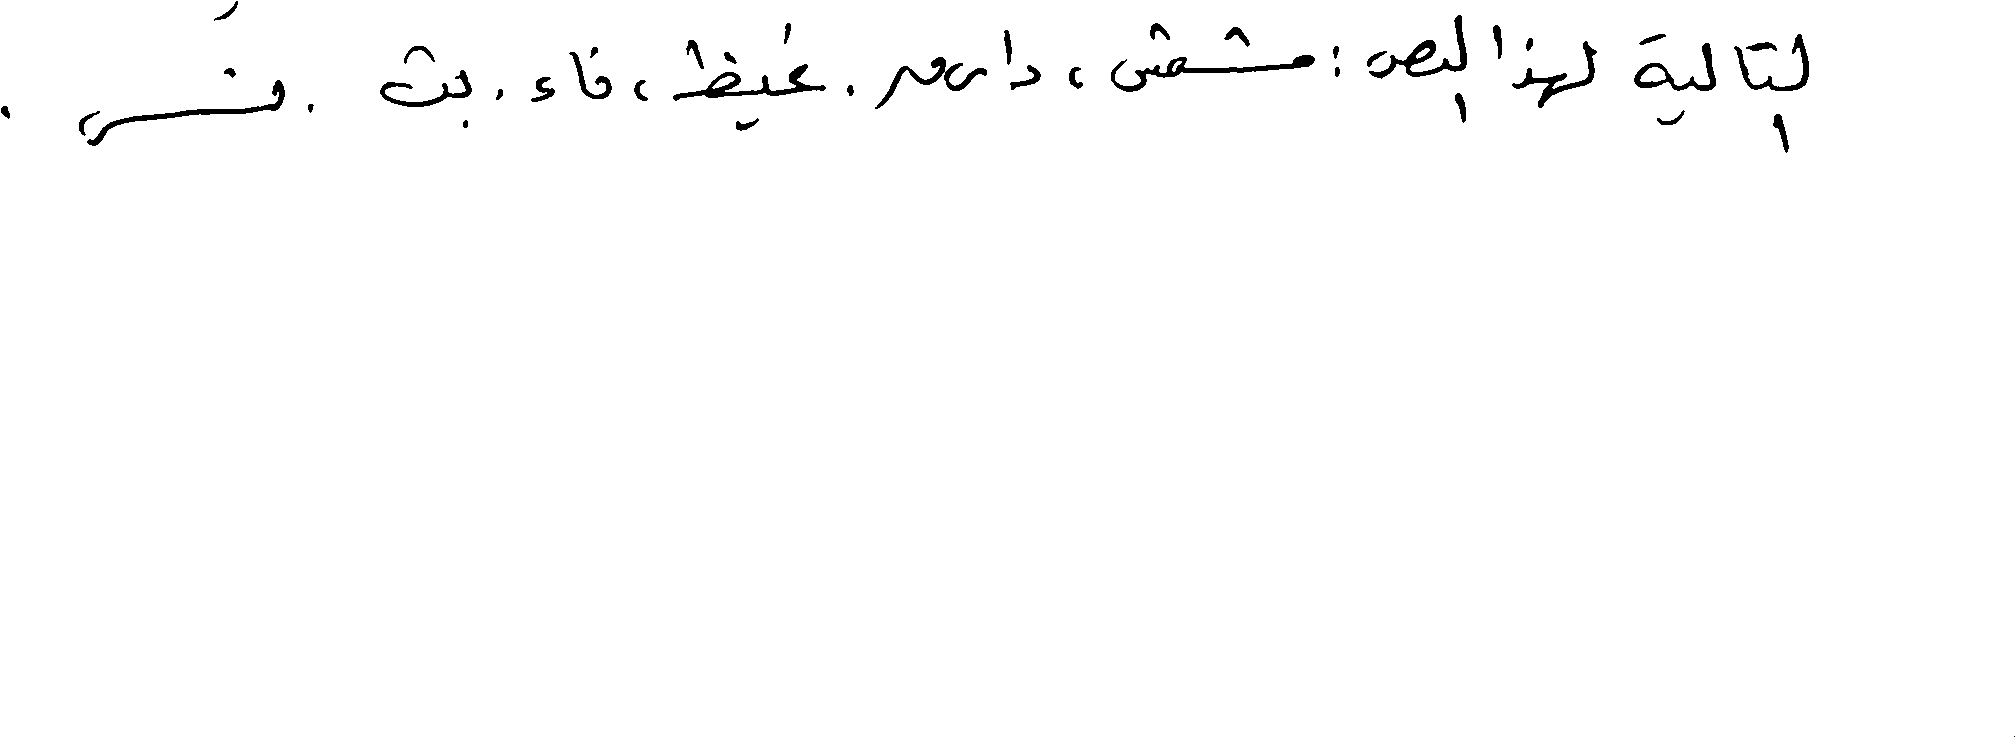 التالية لهذا النص: مشمش، دارس. غيظ، فاء. بث. فسي.